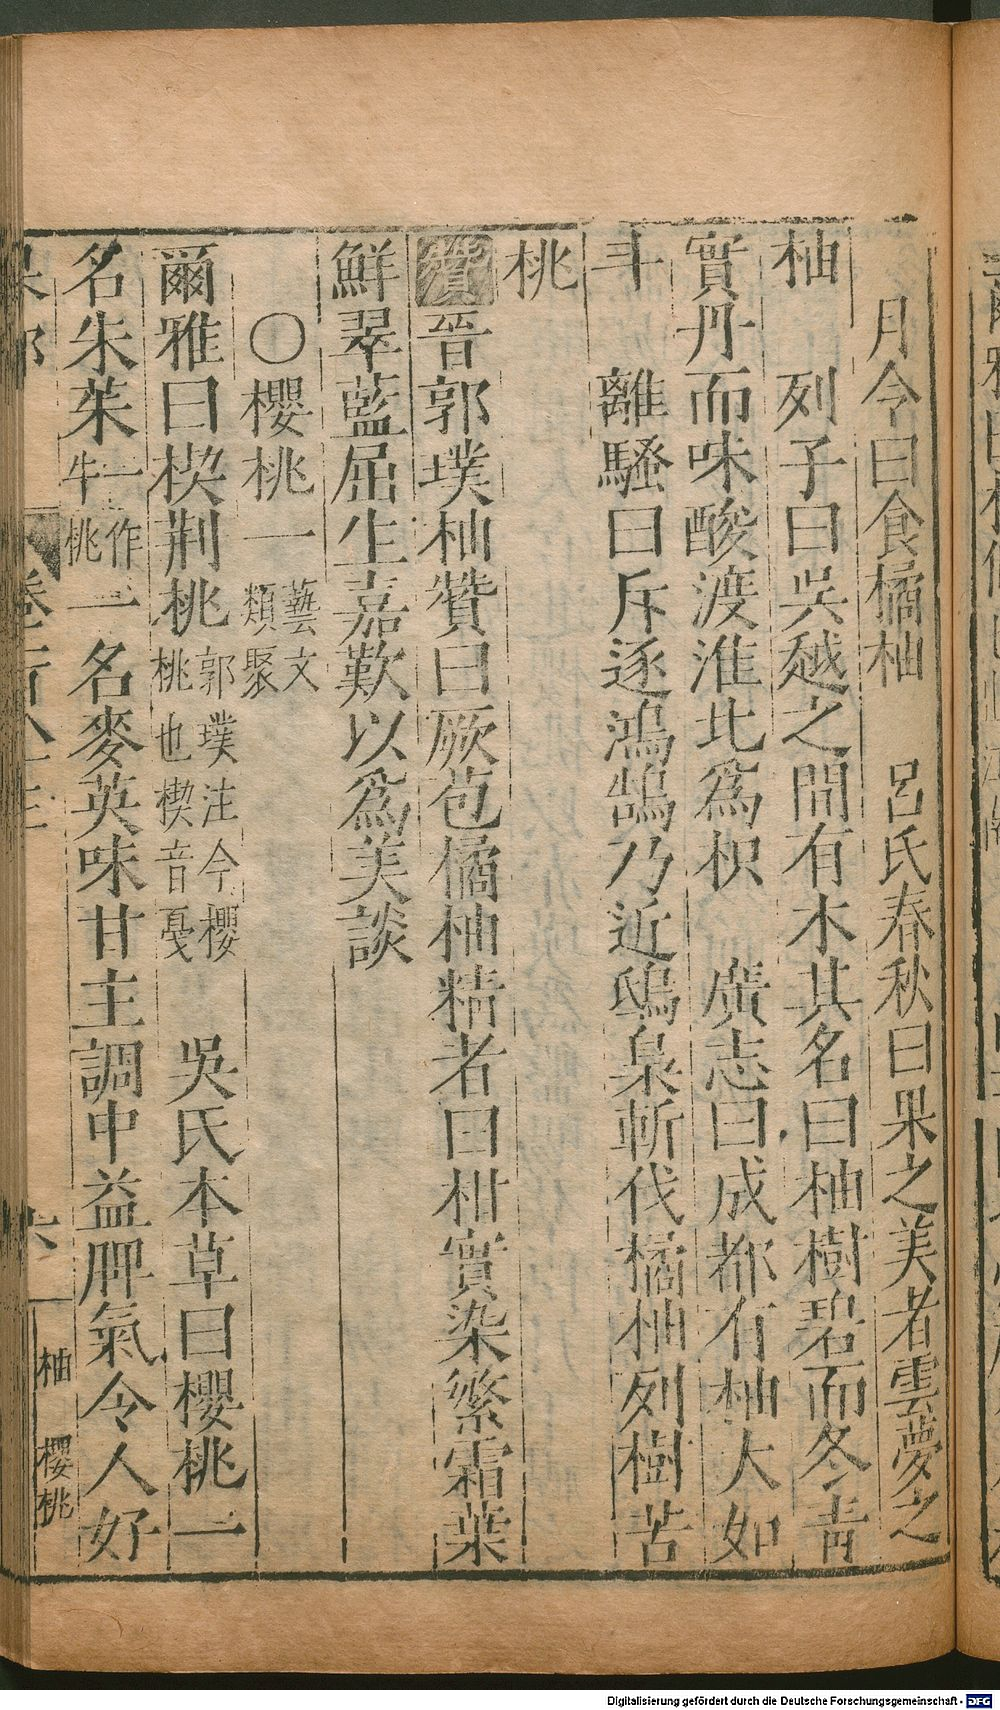 月令曰食橘柚　呂氏春秋曰果之美者雲夢之
柚　列子曰吳越之間有木其名曰柚樹碧而冬青
實丹而味酸渡淮北為枳　廣志曰成都有柚大如
斗　離騷曰斥逐鴻鵠乃近鴟梟斬伐橘柚列樹苦
桃
贊晉郭璞柚贊曰厥苞橘柚精者曰柑實染繁霜葉
鮮翠藍屈生嘉歎以為美談
〇櫻桃一藝文類聚
爾雅曰楔荆桃郭璞注今櫻桃也楔音戞　吳氏本草曰櫻桃一
名朱茱一作牛桃一名麥英味甘主調中益脾氣令人好
柚　櫻桃
Digitalisierung gefördert durch die Deutsche Forschungsgemeinschaft - DFG